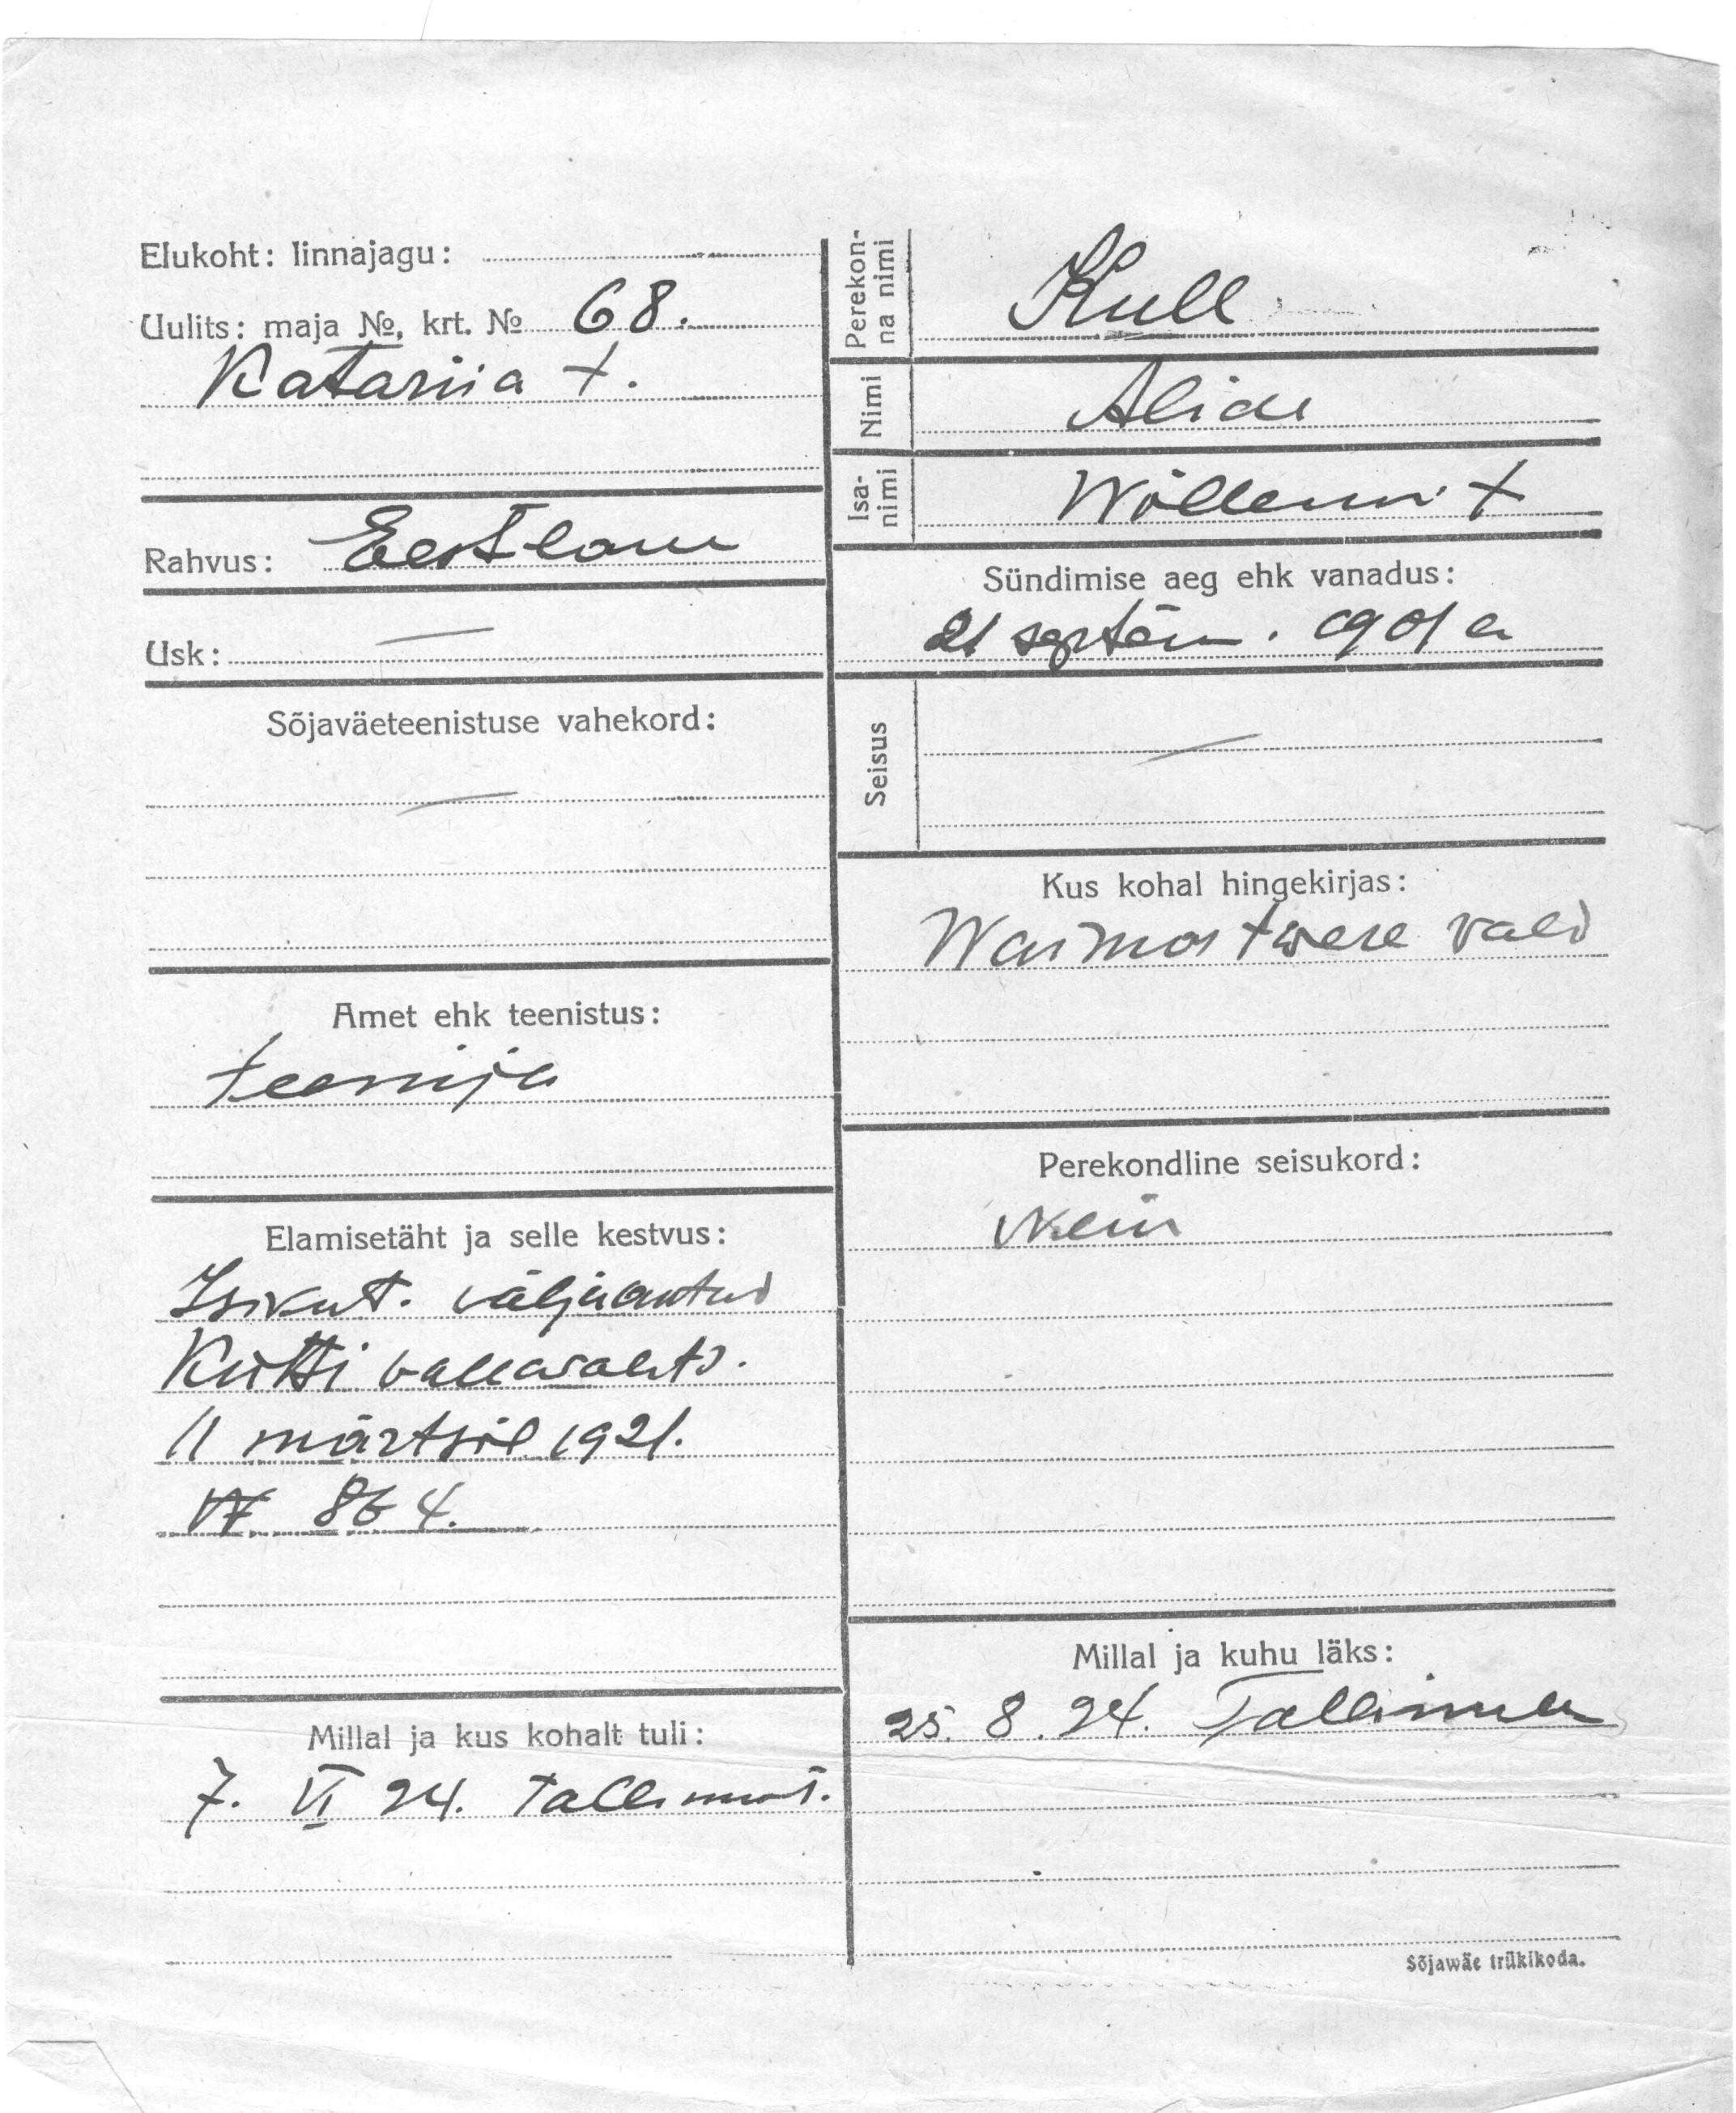 Elukoht: linnajagu:
Uulits: maja №, krt. № 68.
Katariia t.
Rahvus: Eestlane
Usk: —
Sõjaväeteenistuse vahekord:
—
Amet ehk teenistus:
teenija
Elamisetäht ja selle kestvus:
Isikut. väljaantud
Kütti vallavalits.
11 märtsil 1921.
№ 864.
Millal ja kus kohalt tuli:
7. VI 24. Tallinnast.
Perekon-
na nimi
Kull
Nimi
Alide
Isa-
nimi
t
Sündimise aeg ehk vanadus:
21 septem. 1901 a
Seisus
—
Kus kohal hingekirjas:
Waimastwere vald
Perekondline seisukord:
Millal ja kuhu läks:
25. 8. 24. Tallinna
Sõjawäe trükikoda.